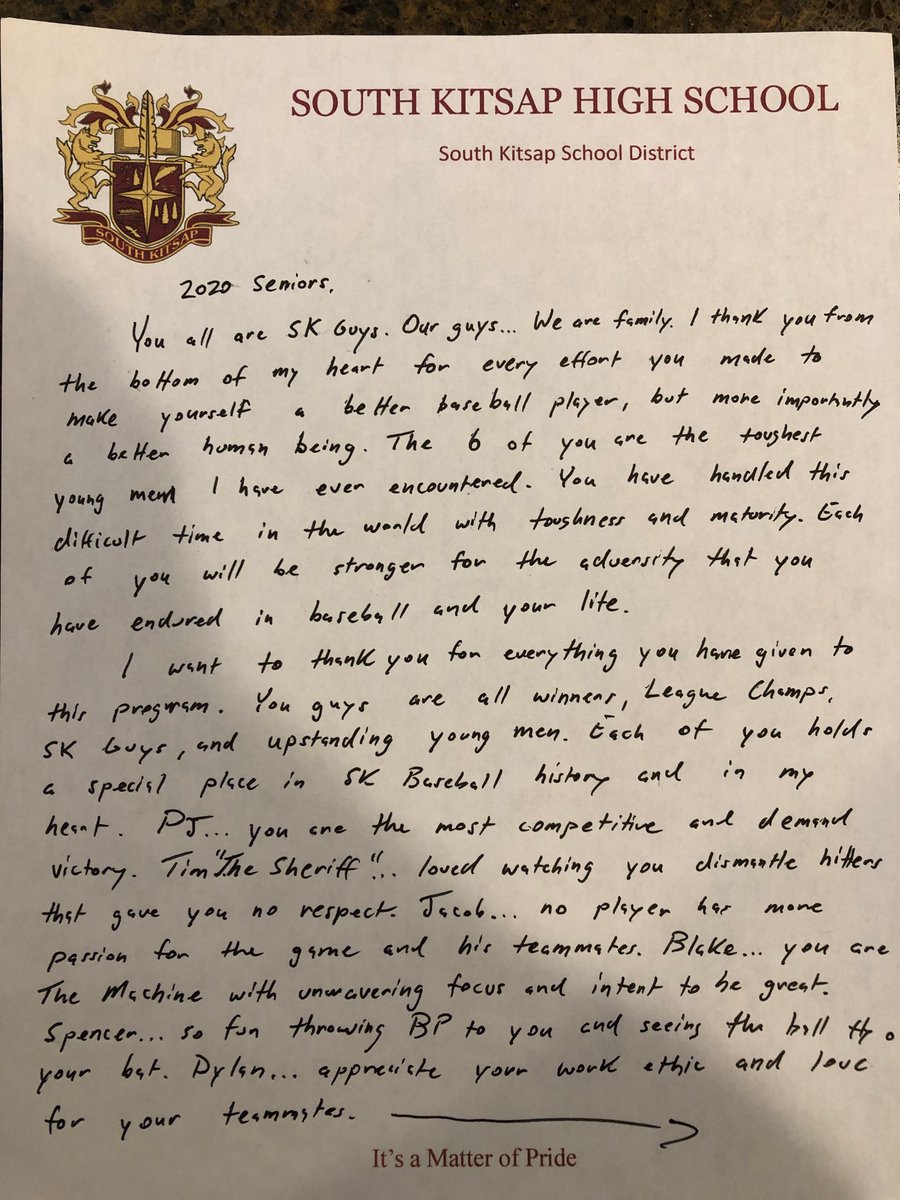 SOUTH KITSAP HIGH SCHOOL
South Kitsap School District
SOUTH KITSAP
2020 Seniors,
You all are SK Guys. Our guys... We are family. I thank you from
the bottom of my heart for every effort you made to
make yourself a better baseball player, but more importantly
a better human being. The 6 of you are the toughest
young men I have ever encountered. You have handled this
difficult time in the world with toughness and maturity. Each
of you will be stronger for the adversity that you
have endured in baseball and your life.
I want to thank you for everything you have given to
this program. You guys are all winners, League Champs,
SK Guys, and upstanding young men. Each of you holds
a special place in SK Baseball history and in my
heart. PJ... you are the most competitive and demand
victory. Tim "The Sheriff"... loved watching you dismantle hitters
that gave you no respect. Jacob... no player has more
passion for the game and his teammates. Blake... you are
The Machine with unwavering focus and intent to be great.
Spencer... so fun throwing BP to you and seeing the ball
your bat. Dylan... appreciate your work ethic and love
for your teammates.
It's a Matter of Pride